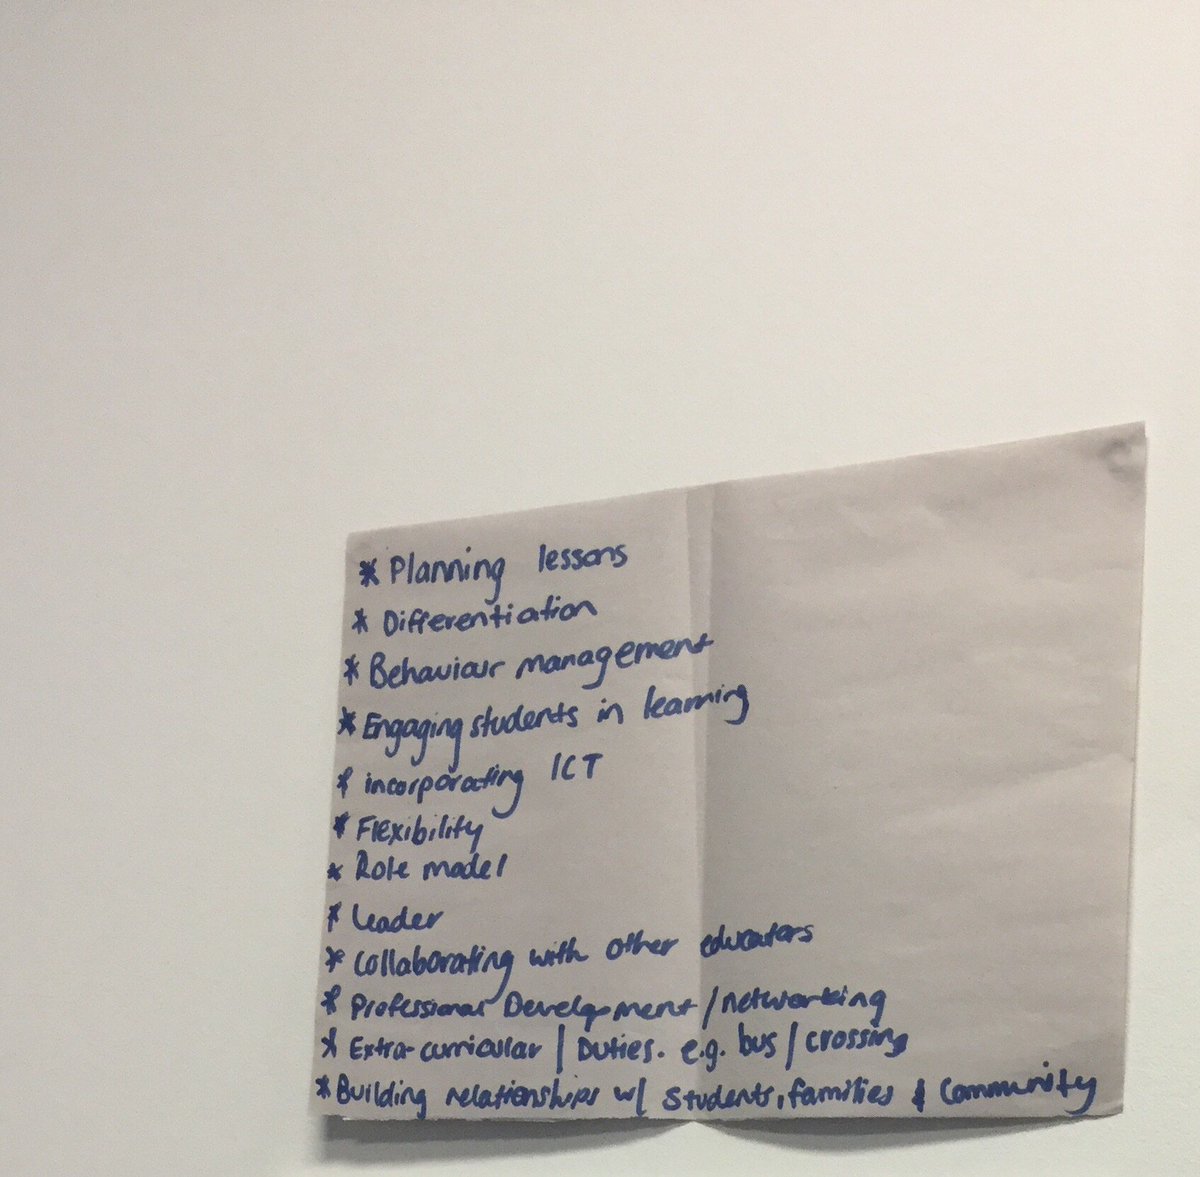 * Planning lessons
* Differentiation
* Behaviour management
* Engaging students in learning
* incorporating ICT
* Flexibility
* Role model
* leader
* collaborating with other educators
* Professional Development / networking
* Extra-curricular / Duties. e.g. bus / crossing
* Building relationships w/ students, families & community